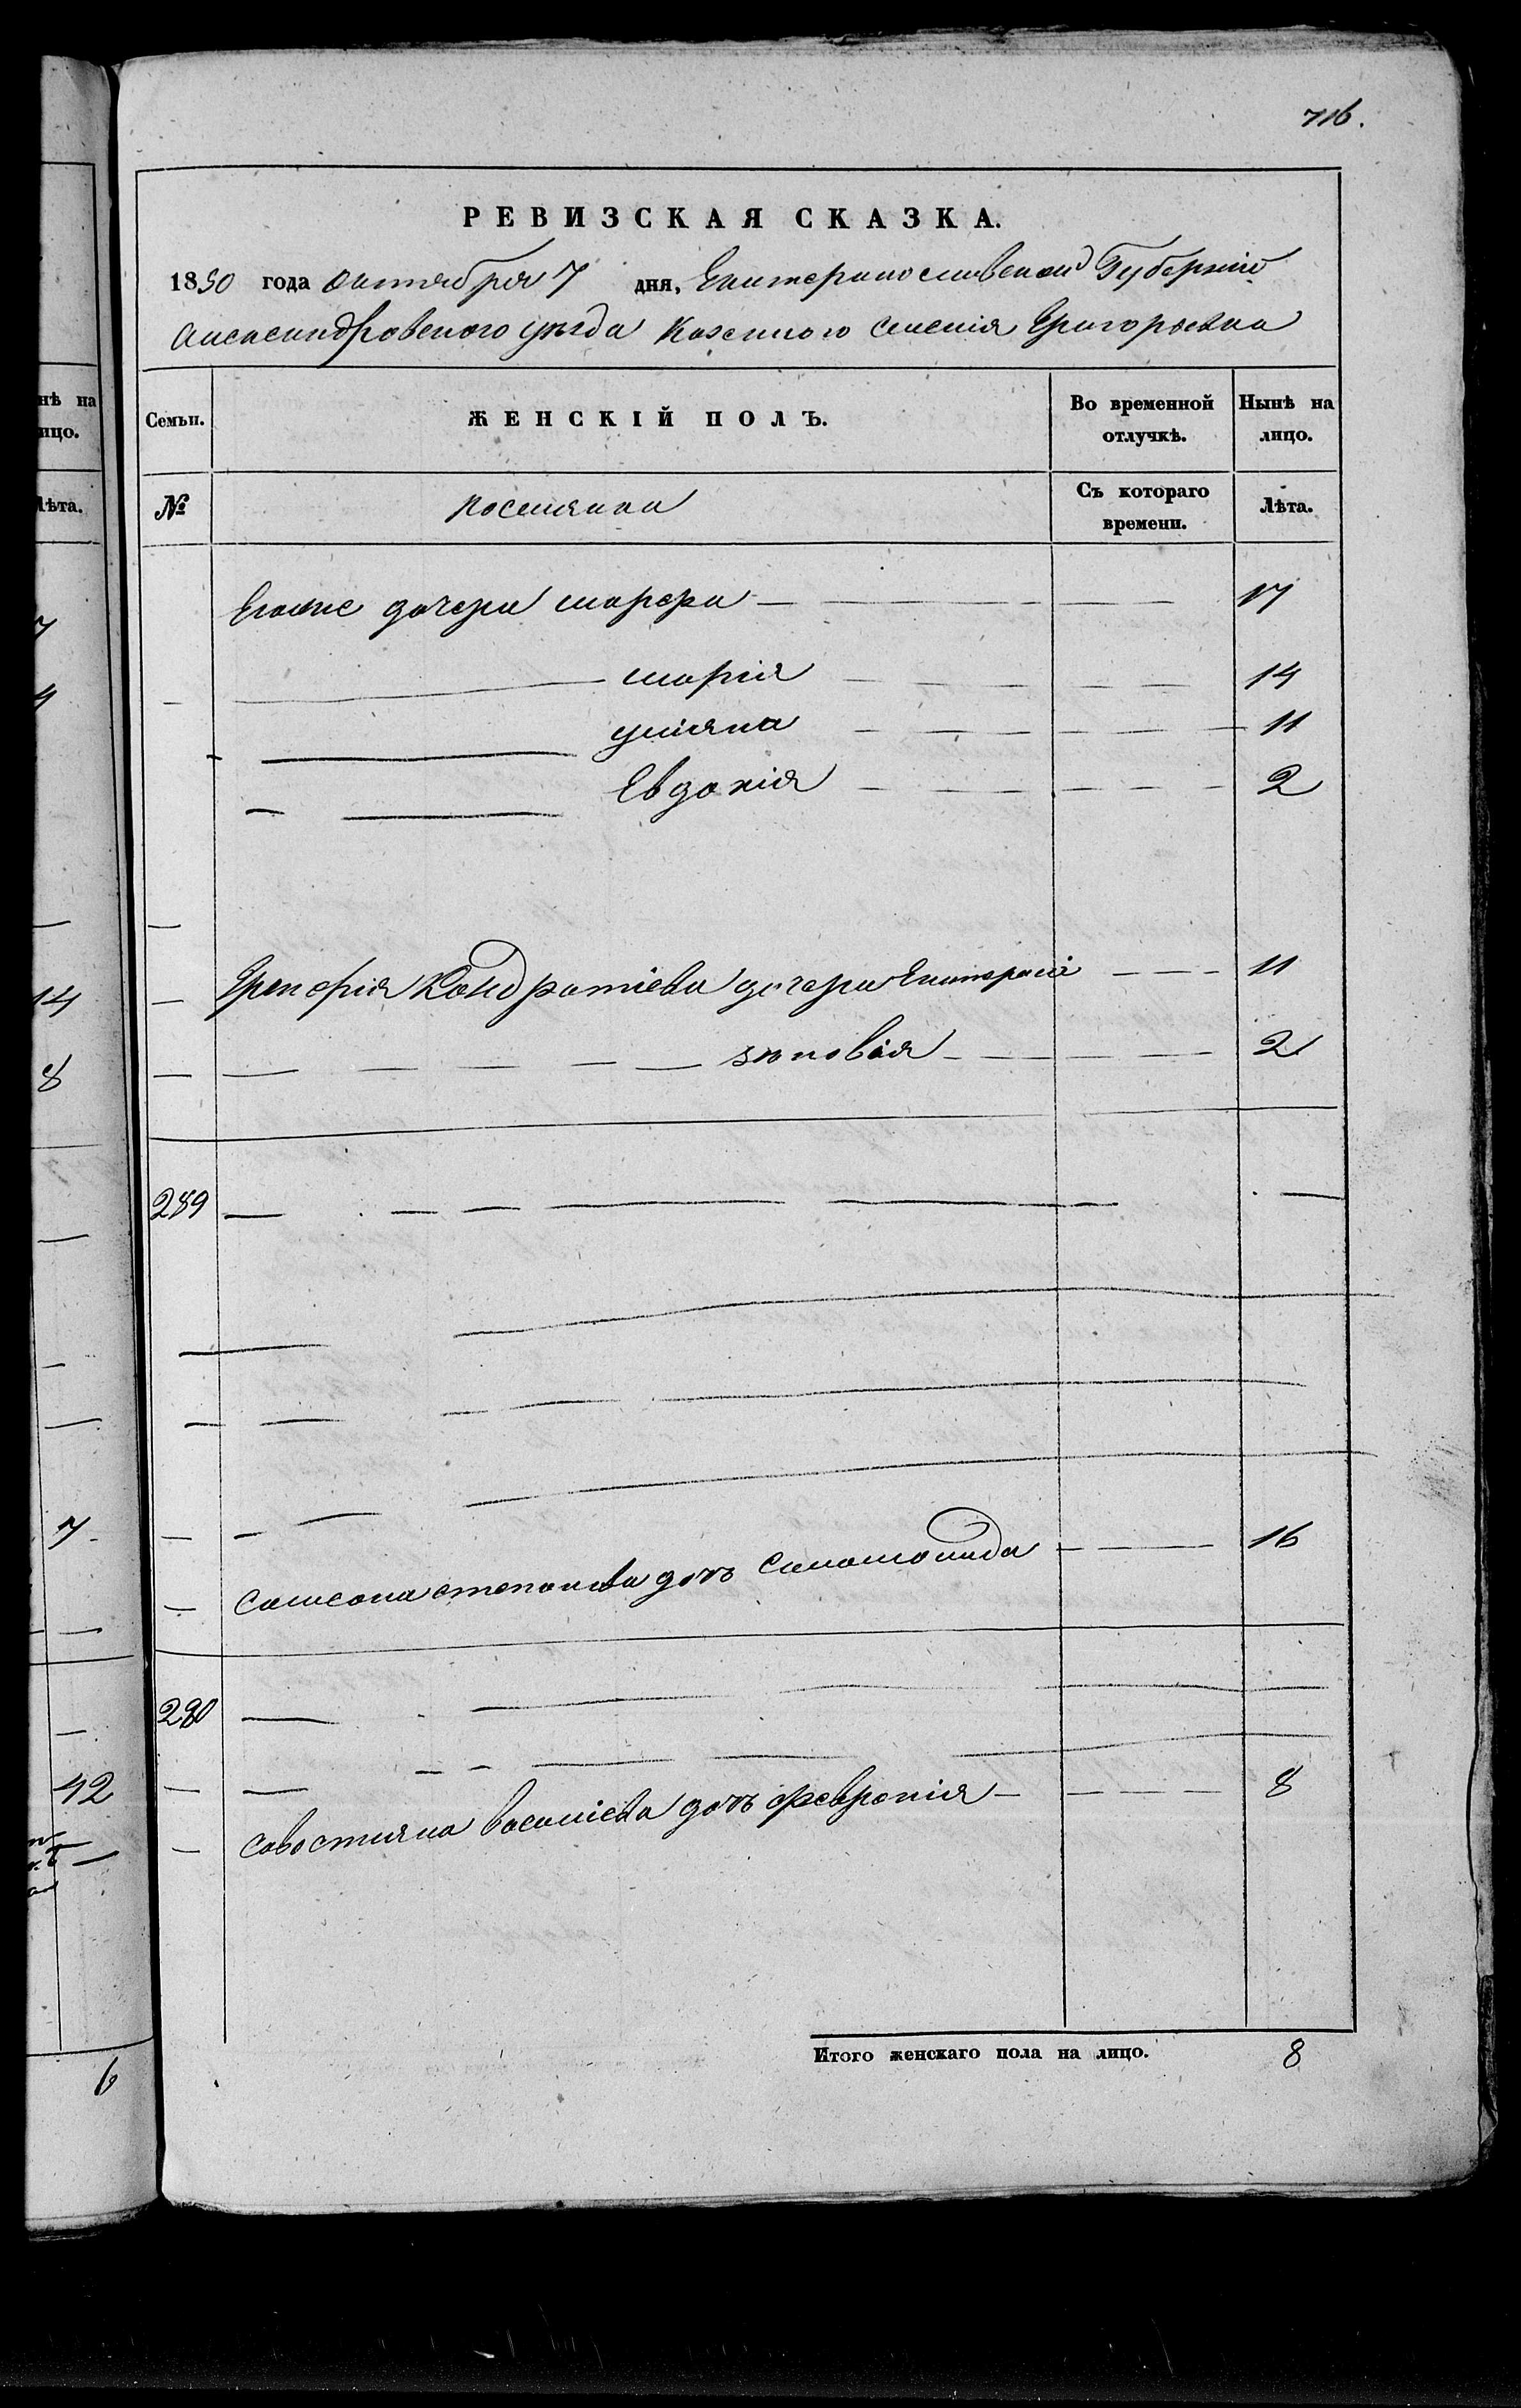 716.
РЕВИЗСКАЯ СКАЗКА.
1850 года Октября 7 дня, Екатеринославской Губернiи
Александровского уезда Казенного Селенiя Григорьевка
нѣ на
ицо.
Семьи.
ЖЕНСКІЙ ПОЛЪ.
Во временной отлучкѣ.
Нынѣ на лицо.
лѣта.
№
поселянки
Съ котораго времени.
Лѣта.
дочери марфа 17
марiя 14
улiяна 11
Евдокiя 2
Кондратiева дочери Екатерина 11
14
зиновiя 2
8
289
7
Самсона степанова дочь Саломонида 16
290
42
Савостияна василiева дочь феврония 8
Итого женскаго пола на лицо. 8
6